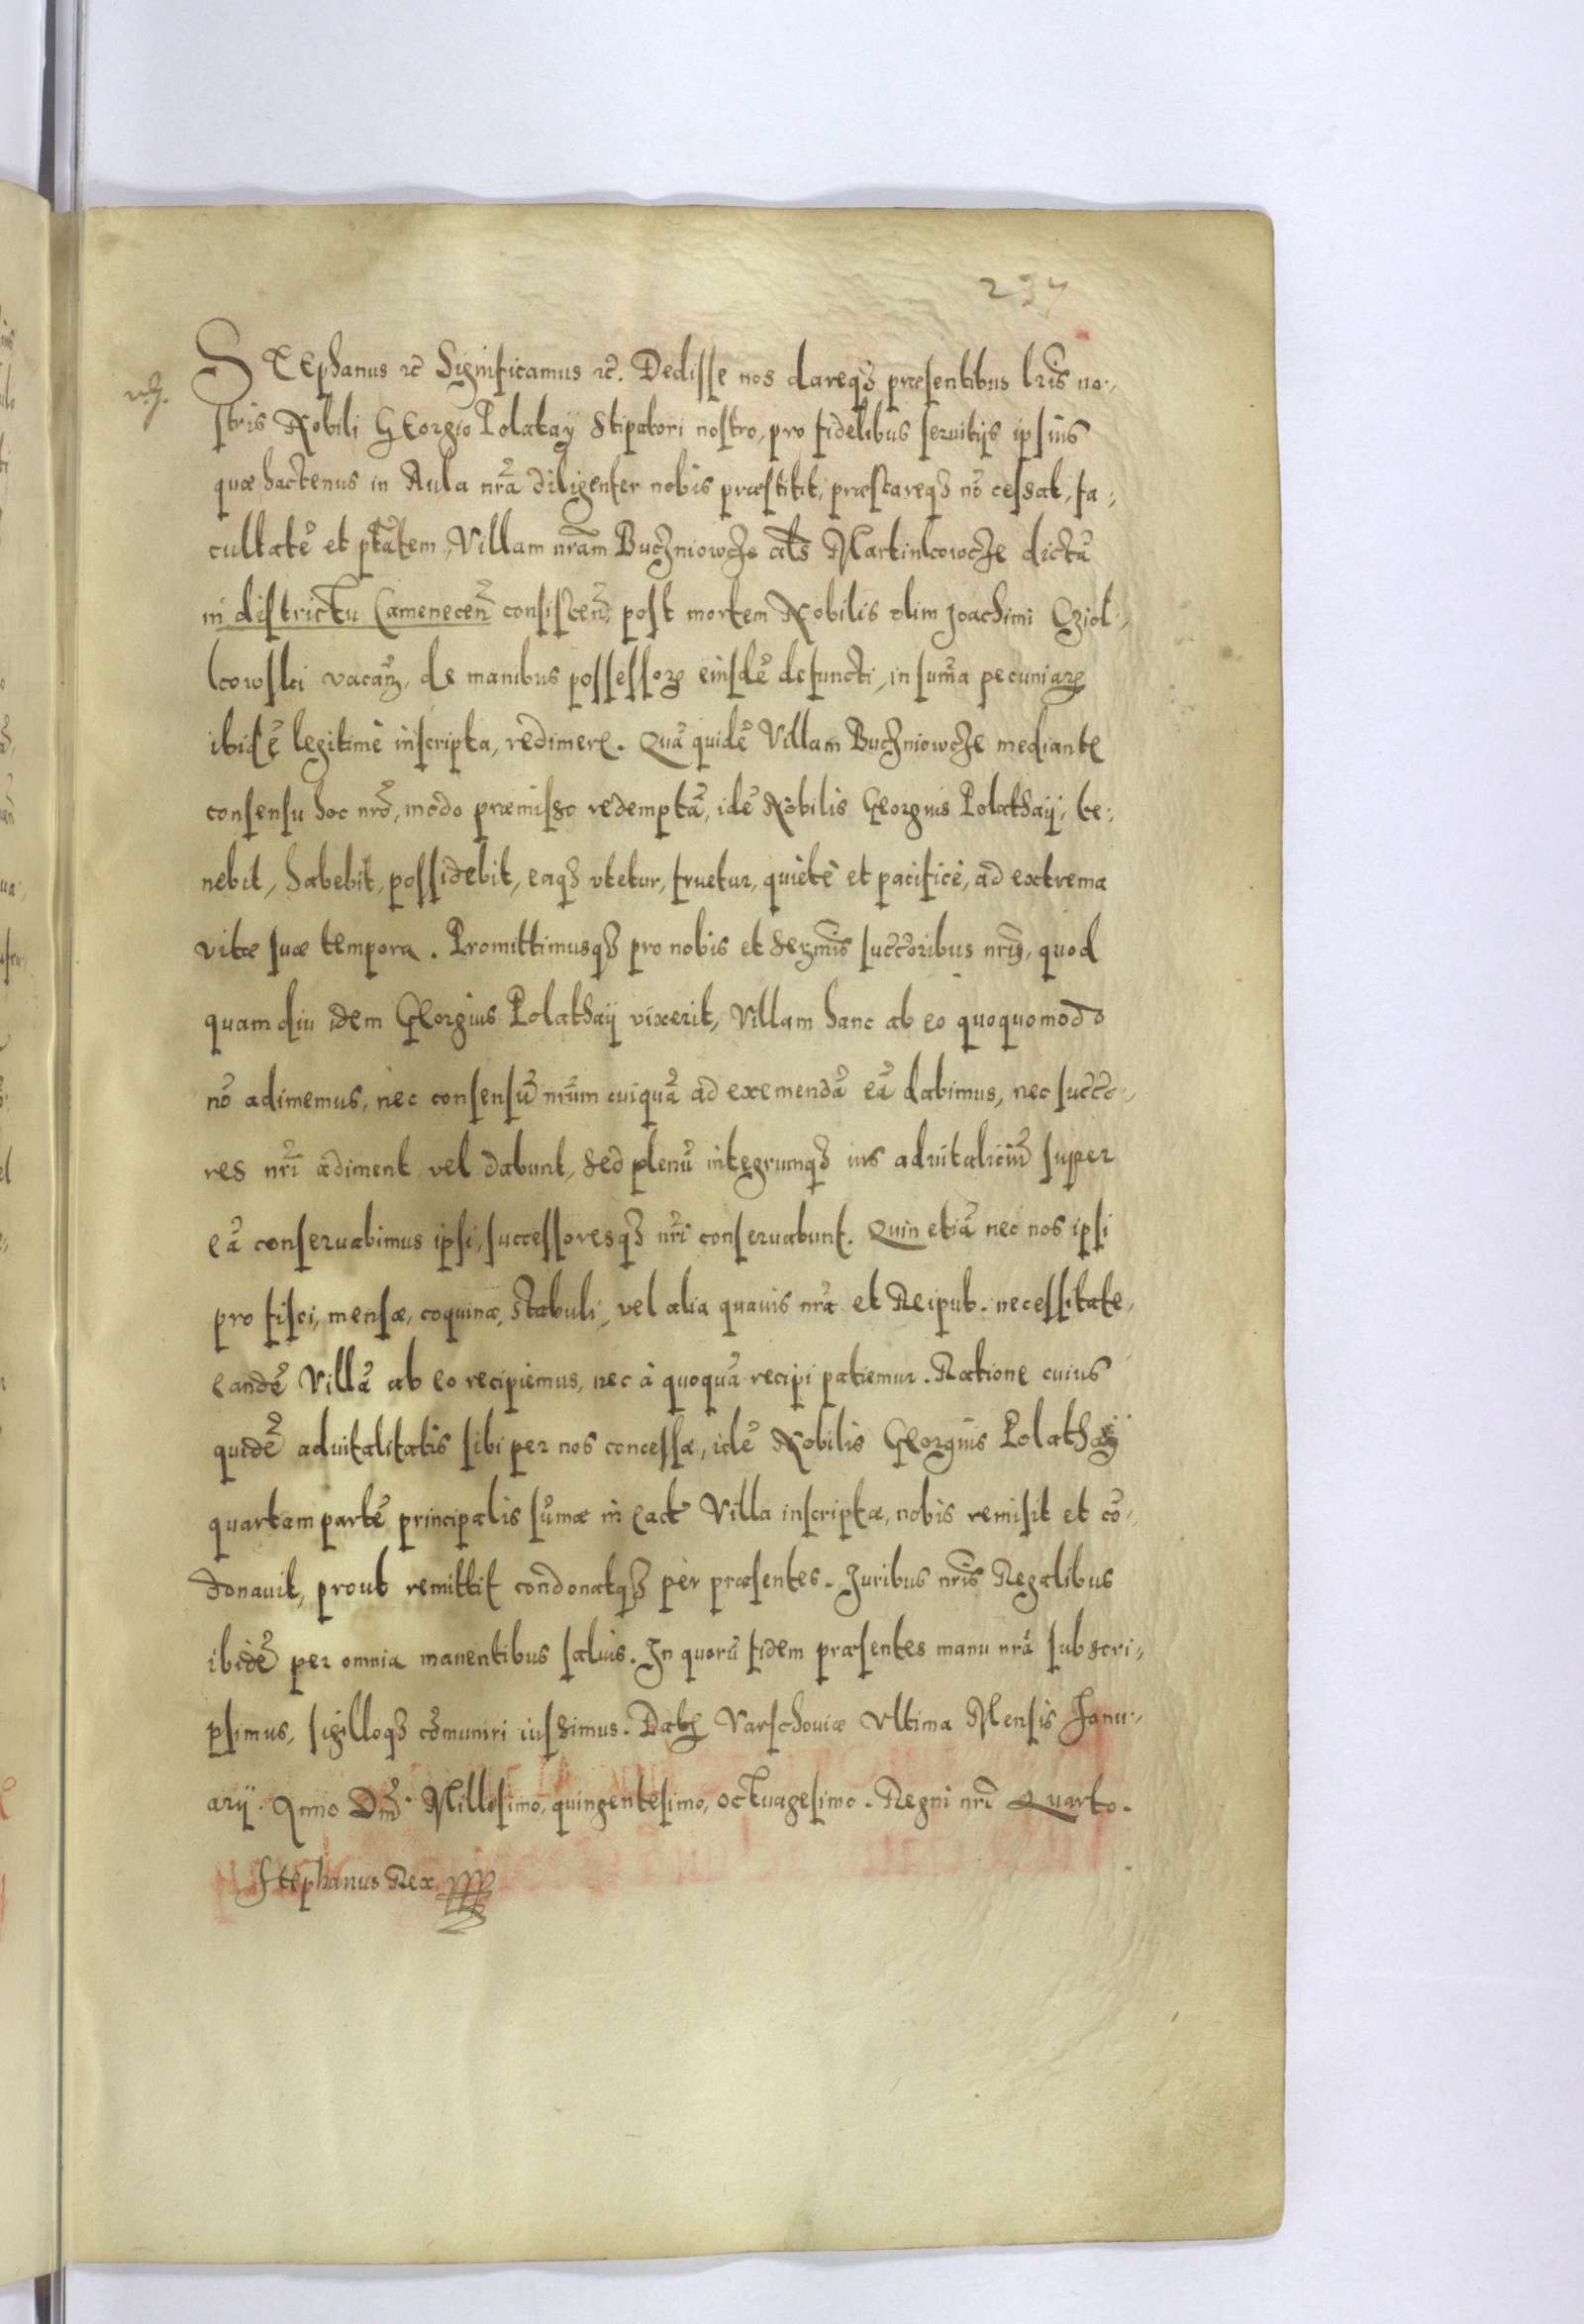 234
STEphanus ꝛc̃ Significamus ꝛc̃. Dedisse nos dareqꝫ præsentibus l̃ris no⸗
stris Nobili GEorgio Polatay Stipatori nostro, pro fidelibus seruitijs ipsius
quæ hactenus in Aula nr̃a diligenter nobis præstitit, præstareqꝫ nõ cessat, fa⸗
cultatẽ et ptãtem, Villam nr̃am Buczniowcze al̃s Martinkowcze dictã
in districtu Camenecen̄ consisten̄, post mortem Nobilis olim Joachimi Cziol⸗
kowski vacan̄, de manibus possessoꝝ eiusdẽ defuncti, in sum̃a pecuniaꝝ
ibidẽ legitimè inscripta, redimere. Quã quidẽ Villam Buczniowcze mediante
consensu hoc nr̃o, modo præmisso redemptã, idẽ Nobilis GEorgius Polathaÿ, te⸗
nebit, habebit, possidebit, eaqꝫ vtetur, fruetur, quietè et pacificè, ad extrema
vitæ suæ tempora. Promittimusqꝫ pro nobis et Serm̃is succ̃oribus nr̃is, quod
quam diu idem GEorgius Polathaÿ vixerit, Villam hanc ab eo quoquomodo
nõ adimemus, nec consensũ nr̃um cuiquã ad exemendã eã dabimus, nec succ̃o⸗
res nr̃i adiment vel dabunt, sed plenũ integrumqꝫ ius aduitaliciũ super
eã conseruabimus ipsi, successoresqꝫ nr̃i conseruabunt. Quin etiã nec nos ipsi
pro fisci, mensæ, coquinæ, stabuli, vel alia quauis nr̃a et Reipub. necessitate,
eandẽ Villã ab eo recipiemus, nec à quoquã recipi patiemur. Ratione cuius
quidẽ aduitalitatis sibi per nos concessæ, idẽ Nobilis GEorgius Polathaÿ
quartam partẽ principalis sũmæ in ead̃ Villa inscriptæ, nobis remisit et cõ⸗
donauit, prout remittit condonatqꝫ per præsentes. Juribus nr̃is Regalibus
ibidẽ per omnia manentibus saluis. In quorũ fidem præsentes manu nr̃a subscri⸗
psimus, sigilloqꝫ cõmuniri iussimus. Datꝫ Varschouiæ Vltima Mensis Janu⸗
arÿ. Anno Dñi. Millesimo, quingentesimo, octuagesimo. Regni nr̃i Quarto.
Stephanus Rex